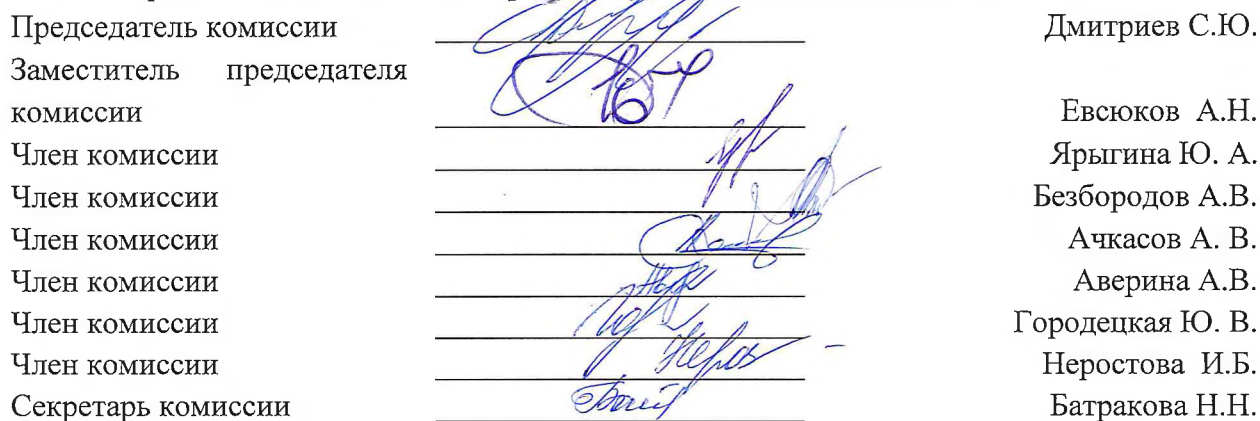 Председатель комиссии Дмитриев С.Ю.
Заместитель председателя
комиссии Евсюков А.Н.
Член комиссии Ярыгина Ю. А.
Член комиссии Безбородов А.В.
Член комиссии Ачкасов А. В.
Член комиссии Аверина А.В.
Член комиссии Городецкая Ю. В.
Член комиссии Неростова И.Б.
Секретарь комиссии Батракова Н.Н.